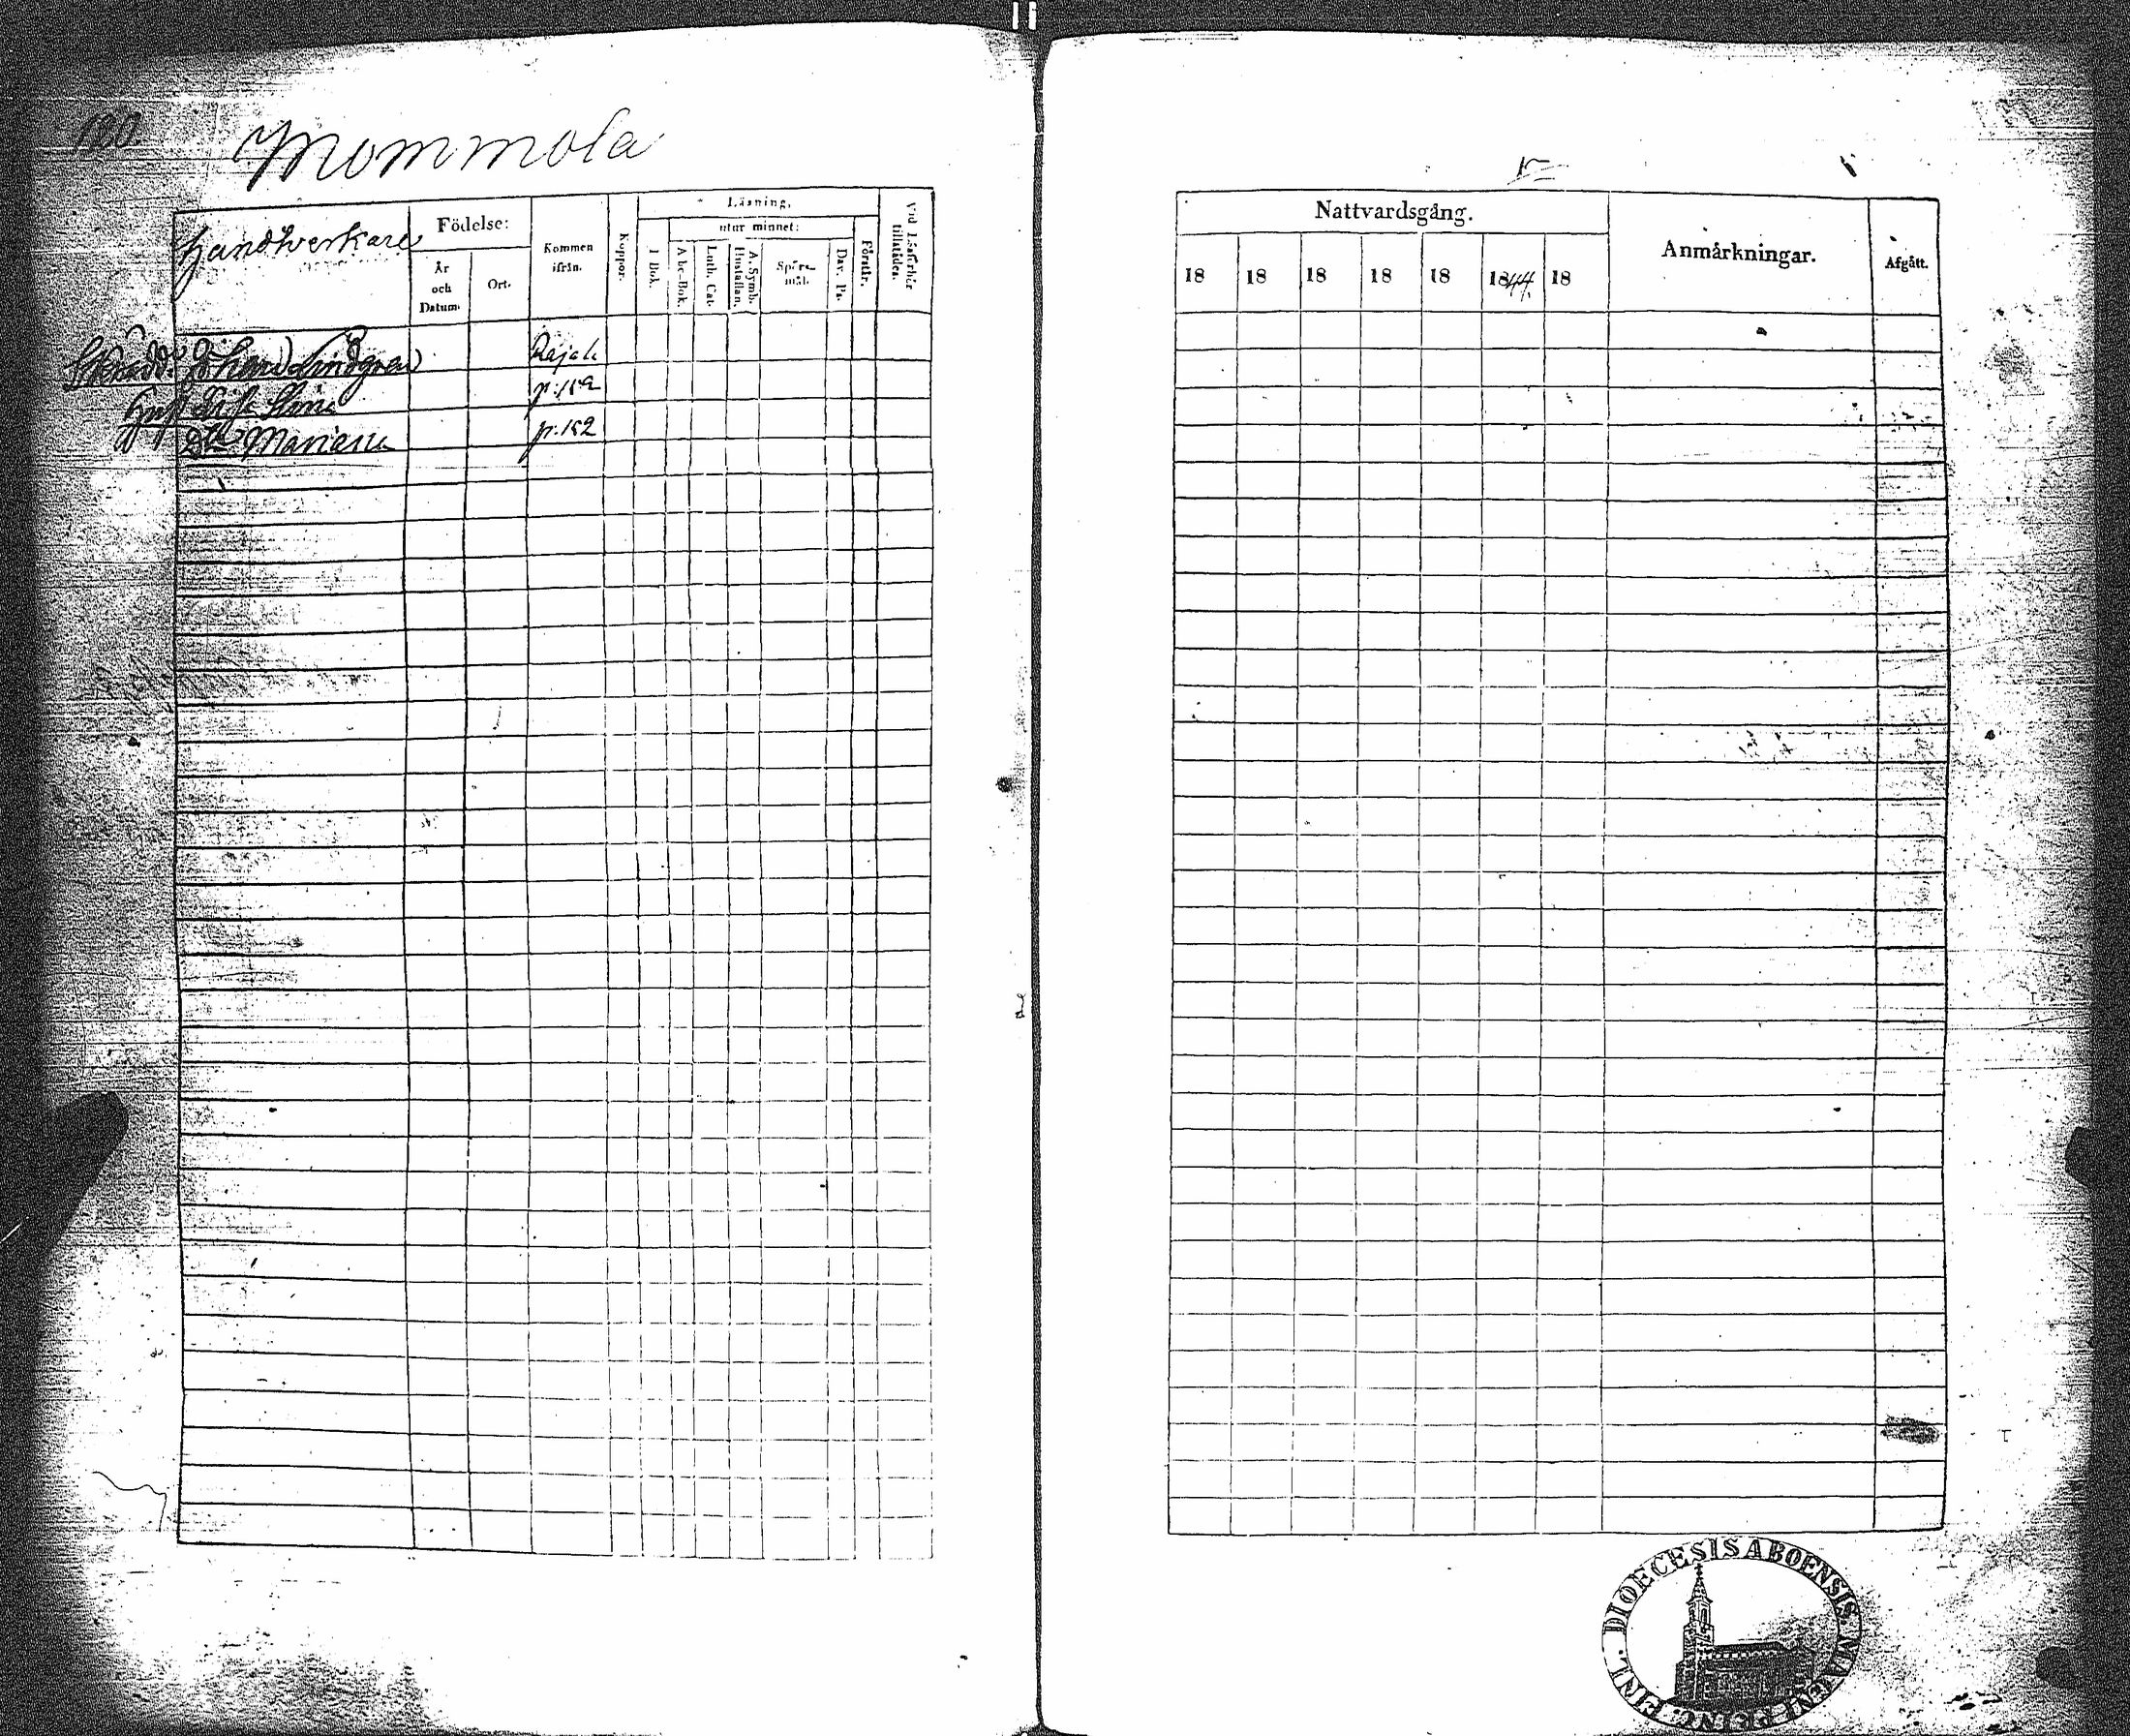 180.
Mommola
Handtverkare
Födelse:
År
och
Datum.
Ort.
Kommen
ifrån.
Koppor.
Läsning,
I Bok.
utur minnet:
A be-Bok.
Luth. Cat.
A. Symb.
Hustaflan.
Spörs-
mål.
Dav. Ps.
Förstår.
Vid Läseförhör
tillstädes.
Skrädd. Johan Lindgren
Hust Stina
Dr Mariana
p. 152
Nattvardsgång.
18 18 18 18 18 1844. 18
Anmårkningar.
Afgått.
DIOECESIS ABOENSIS
FINL.